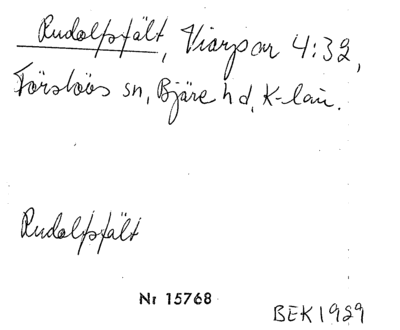 Rudolfsfält, Viarpar 4:32,
Förslövs sn, Bjäre hd, K-län.
Rudolfsfält
Nr 15768
BEK 1929